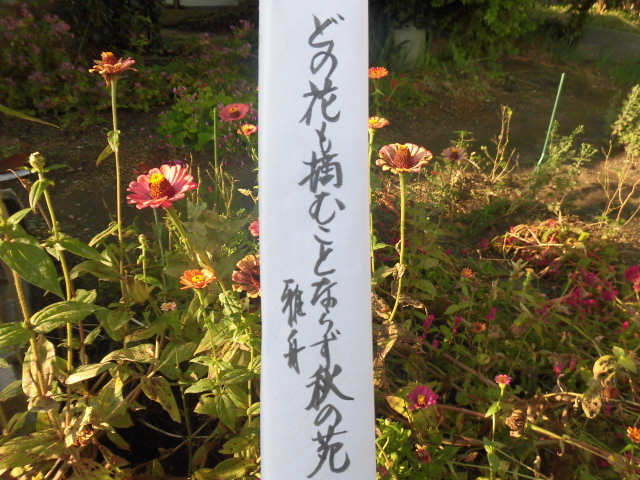 どの花も摘むことならず秋の苑
雅舟